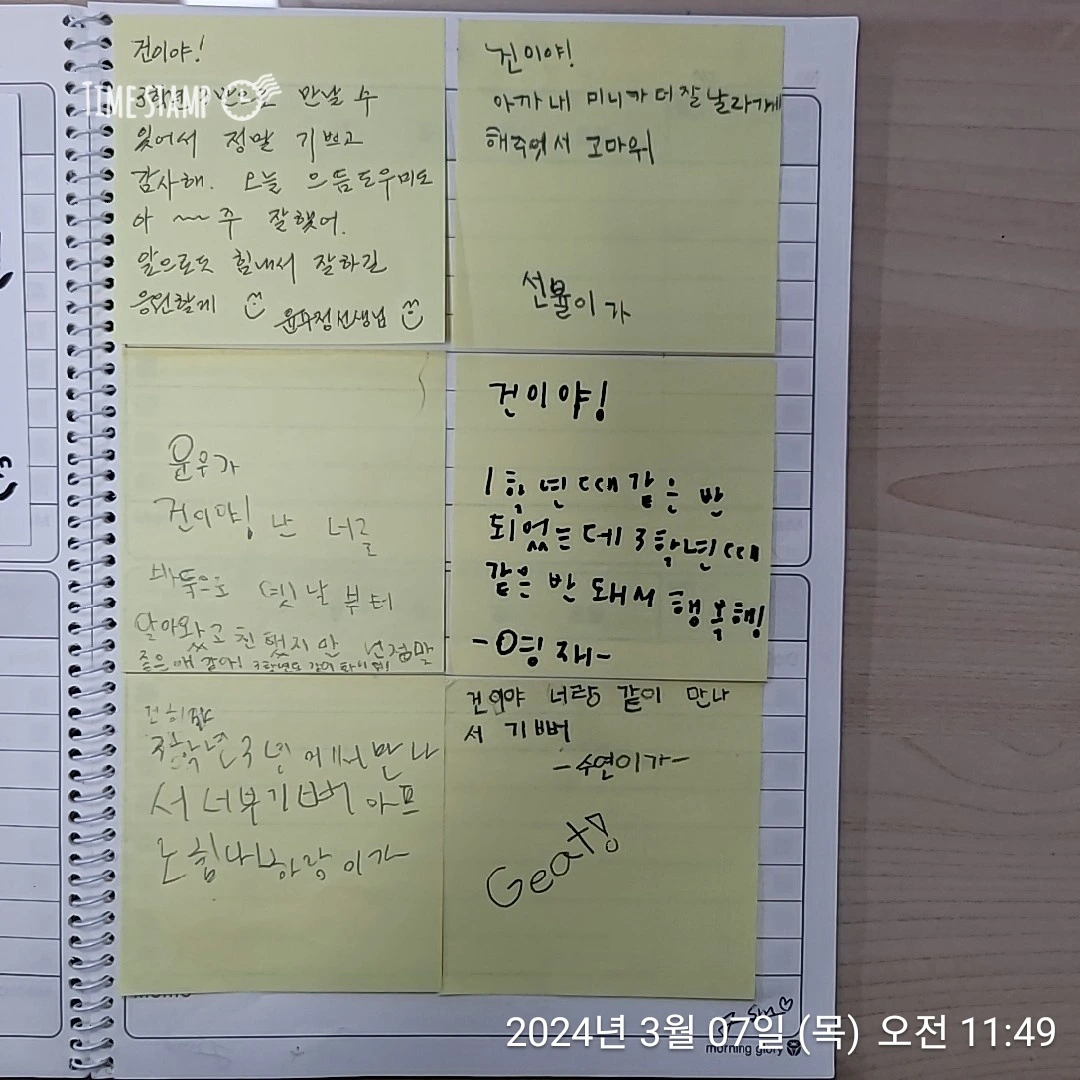 건이야!
만날 수
있어서 정말 기쁘고
감사해. 오늘 으뜸도우미도
아 ~~ 주 잘했어.
앞으로도 힘내서 잘하길
응원할게
윤수정선생님
TIMESTAMP
건이야!
아까 내 미니카 더 잘 날라가게
해주엇서 고마워
선율이가
윤우가
건이야! 난 너를
바둑으로 옛날부터
알아왔고 친했지만 넌 정말
좋은 애 같아! 3학년도 같이 화이팅!
건이야!
1학년때 같은 반
되었는데 3학년때
같은 반 돼서 행복해!
-영재-
건히야
3학년 에서 만나
서 너무 기뻐
힘내 하랑이가
건이야 너랑 같이 만나
서 기뻐
-수연이가-
Geat!
morning glory
2024년 3월 07일 (목) 오전 11:49